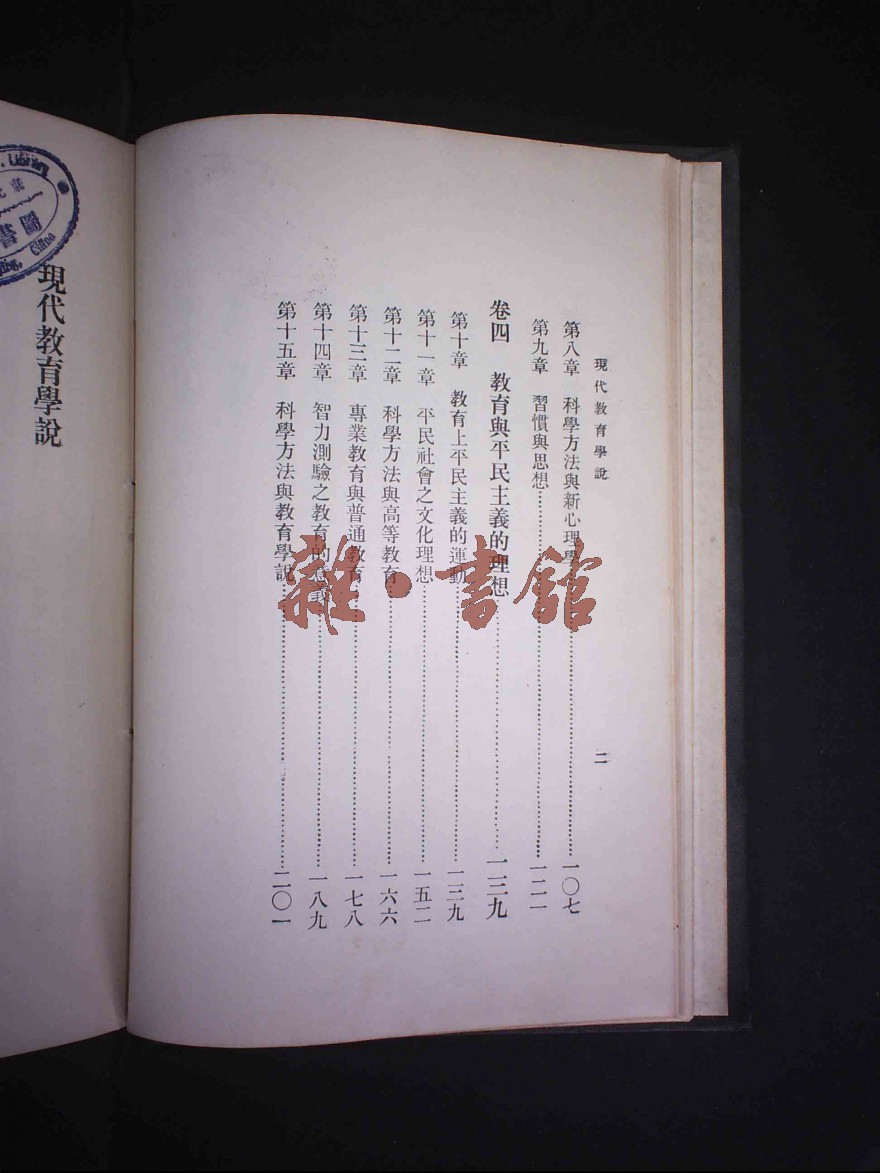 現代教育學說
二
第八章 科學方法與新心理學 一〇七
第九章 習慣與思想 一二一
卷四 教育與平民主義的理想 一三九
第十章 教育上平民主義的運動 一三九
第十一章 平民社會之文化理想 一五二
第十二章 科學方法與高等教育 一六六
第十三章 專業教育與普通教育 一七八
第十四章 智力測驗之教育的意義 一八九
第十五章 科學方法與教育學說 二〇一
雜·書館
現代教育學說
Library
書圖
China